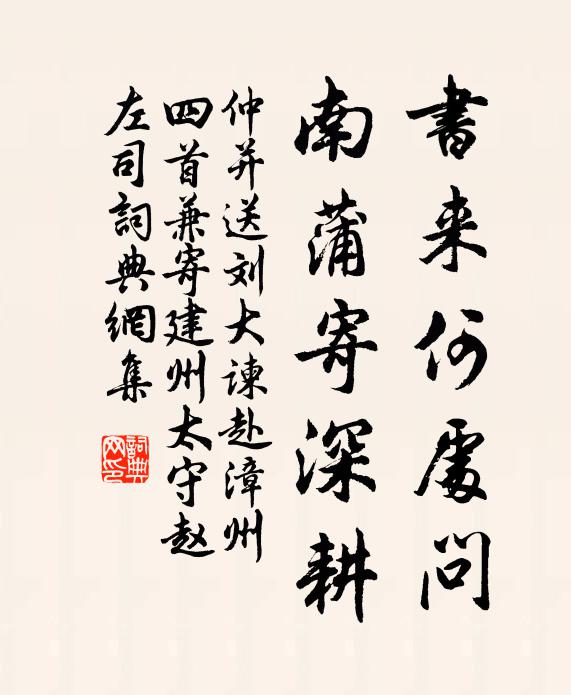 書来何處問
南蒲寄深耕
仲并送刘大諫赴漳州
四首兼寄建州太守赵
左司詞典網集
詞典网印